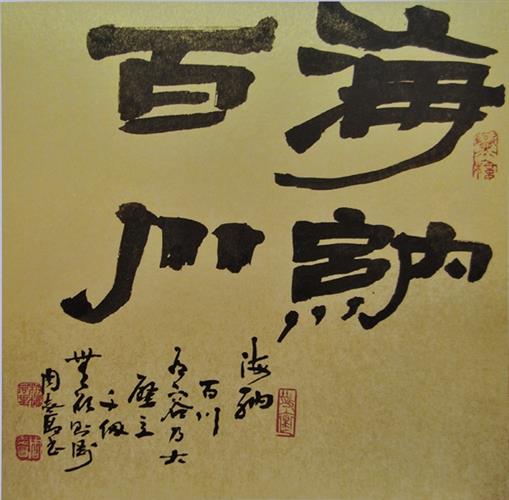 海納
百川
海納
百川
有容乃大
壁立
千仞
無欲則剛
周志高书